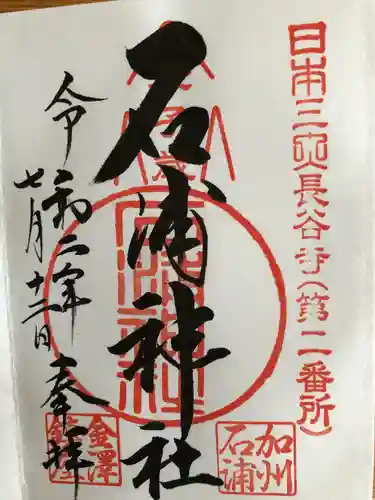 日本三大長谷寺(第二番所)
石浦神社
加州
石浦
令和二年
七月十二日
奉拝
金澤